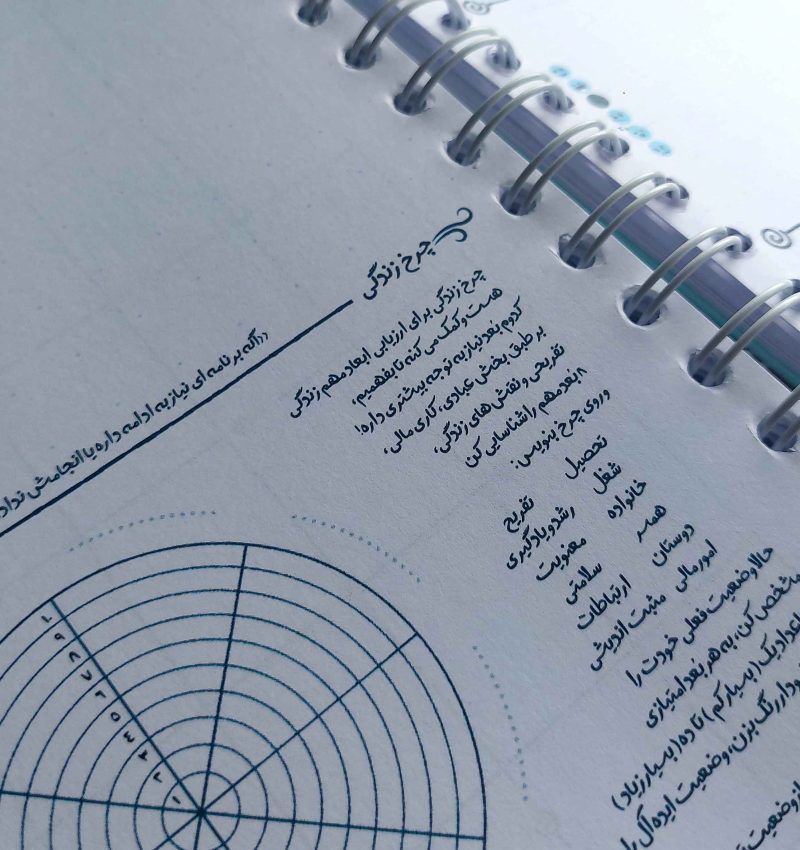 چرخ زندگی
چرخ زندگی برای ارزیابی ابعاد مهم زندگی
هست و کمک می کنه تا بفهمیم،
کدوم بعد نیاز به توجه بیشتری داره!
بر طبق بخش عبادی، کاری مالی،
تفریحی و نقش های زندگی،
۸ بعد مهم را شناسایی کن
وروی چرخ بنویس:
تحصیل تفریح
شغل رشد و یادگیری
خانواده معنویت
همسر سلامتی
دوستان ارتباطات
امور مالی مثبت اندیشی
حالا وضعیت فعلی خودت را
مشخص کن، به هر بعد امتیازی
اعداد یک (بسیار کم) تا ده (بسیار زیاد)
رنگ بزن، وضعیت ایده آل را
وضعیت
اگه برنامه ای نیاز به ادامه داره یا انجامش
۱۰
۹
۸
۷
۶
۵
۴
۳
۲
۱